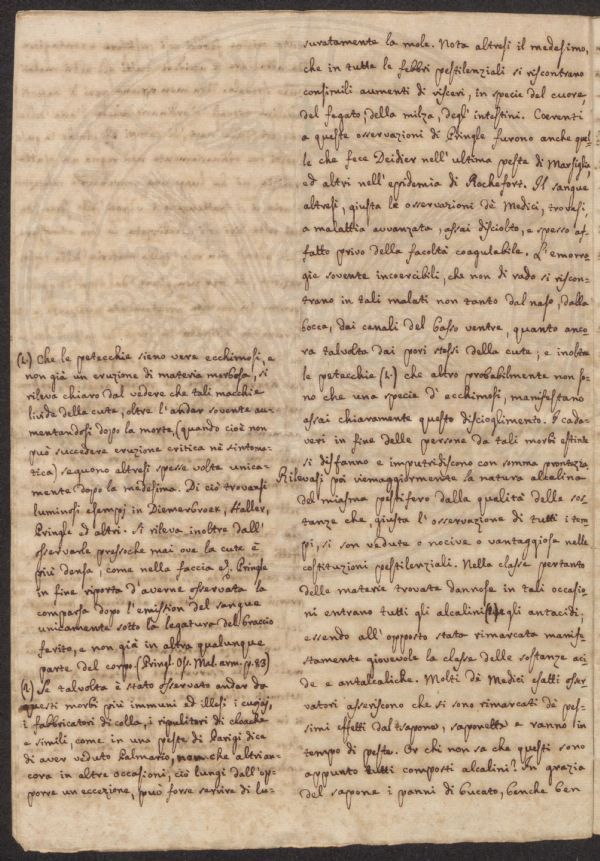 suratamente la mole. Nota altresì il medesimo,
che in tutte le febbri pestilenziali si riscontrano
consimili aumenti di visceri, in specie del cuore,
del fegato, della milza, degl' intestini. Coerenti
a queste osservazioni di Pringle furono anche quel-
le che fece Deidier nell' ultima peste di Marsiglia,
ed altri nell' epidemia di Rochefort. Il sangue
altresì, giusta le osservazioni de Medici, trovasi,
a malattia avvanzata, assai disciolto, e spesso af-
fatto privo della facoltà coagulabile. L' emorra-
gie sovente incoercibili, che non di rado si riscon-
trano in tali malati non tanto dal naso, dalla
bocca, dai canali del basso ventre, quanto anco-
ra talvolta dai pori stessi della cute; e inoltre
le petecchie (1.) che altro probabilmente non so-
no che una specie d' ecchimosi, manifestano
assai chiaramente questo discioglimento. I cada-
veri in fine delle persone da tali morbi estinte
si disfanno e imputridiscono con somma prontezza.
Rilevasi poi viemaggiormente la natura alcalina
del miasma pestifero dalla qualità delle sos-
tanze che, giusta l' osservazione di tutti i tem-
pi, si son vedute o nocive o vantaggiose nelle
costituzioni pestilenziali. Nella classe pertanto
delle materie trovate dannose in tali occasio-
ni entrano tutti gli alcalini (2) e gli antacidi,
essendo all' opposto stata rimarcata manife-
stamente giovevole la classe delle sostanze aci-
de e antalcaliche. Molti de Medici esatti osser-
vatori asseriscono che si sono rimarcati de pes-
simi effetti dal sapone, saponetta e ranno in
tempo di peste. Or chi non sa che questi sono
appunto tutti composti alcalini? In grazia
del sapone i panni di bucato, benche ben
(1.) Che le petecchie sieno vere ecchimosi, e
non già un eruzione di materia morbosa, si
rileva chiaro dal vedere che tali macchie
livide della cute, oltre l' andar sovente au-
mentandosi dopo la morte, (quando cioè non
può succedere eruzione critica nè sintoma-
tica) seguono altresì spesse volte unica-
mente dopo la medesima. Di ciò trovansi
luminosi esempj in Diemerbroek, Haller,
Pringle ed altri. Si rileva inoltre dall'
osservarle pressoche mai ove la cute è
più densa, come nella faccia &c. Pringle
in fine riporta d' averne osservata la
comparsa dopo l' emission del sangue
unicamente sotto la legatura del braccio
ferito, e non già in altra qualunque
parte del corpo (Pringl. Oss. Mal. arm. p. 93)
(2) Se talvolta è stato osservato andar da
questi morbi più immuni ed illesi i cuojaj,
i fabbricatori di colla, i ripulitori di cloache
e simili, come in una peste di Parigi dice
di aver veduto Palmario, nonche altri an-
cora in altre occasioni, ciò lungi dall' op-
porre un eccezione, può forse servire di lu-